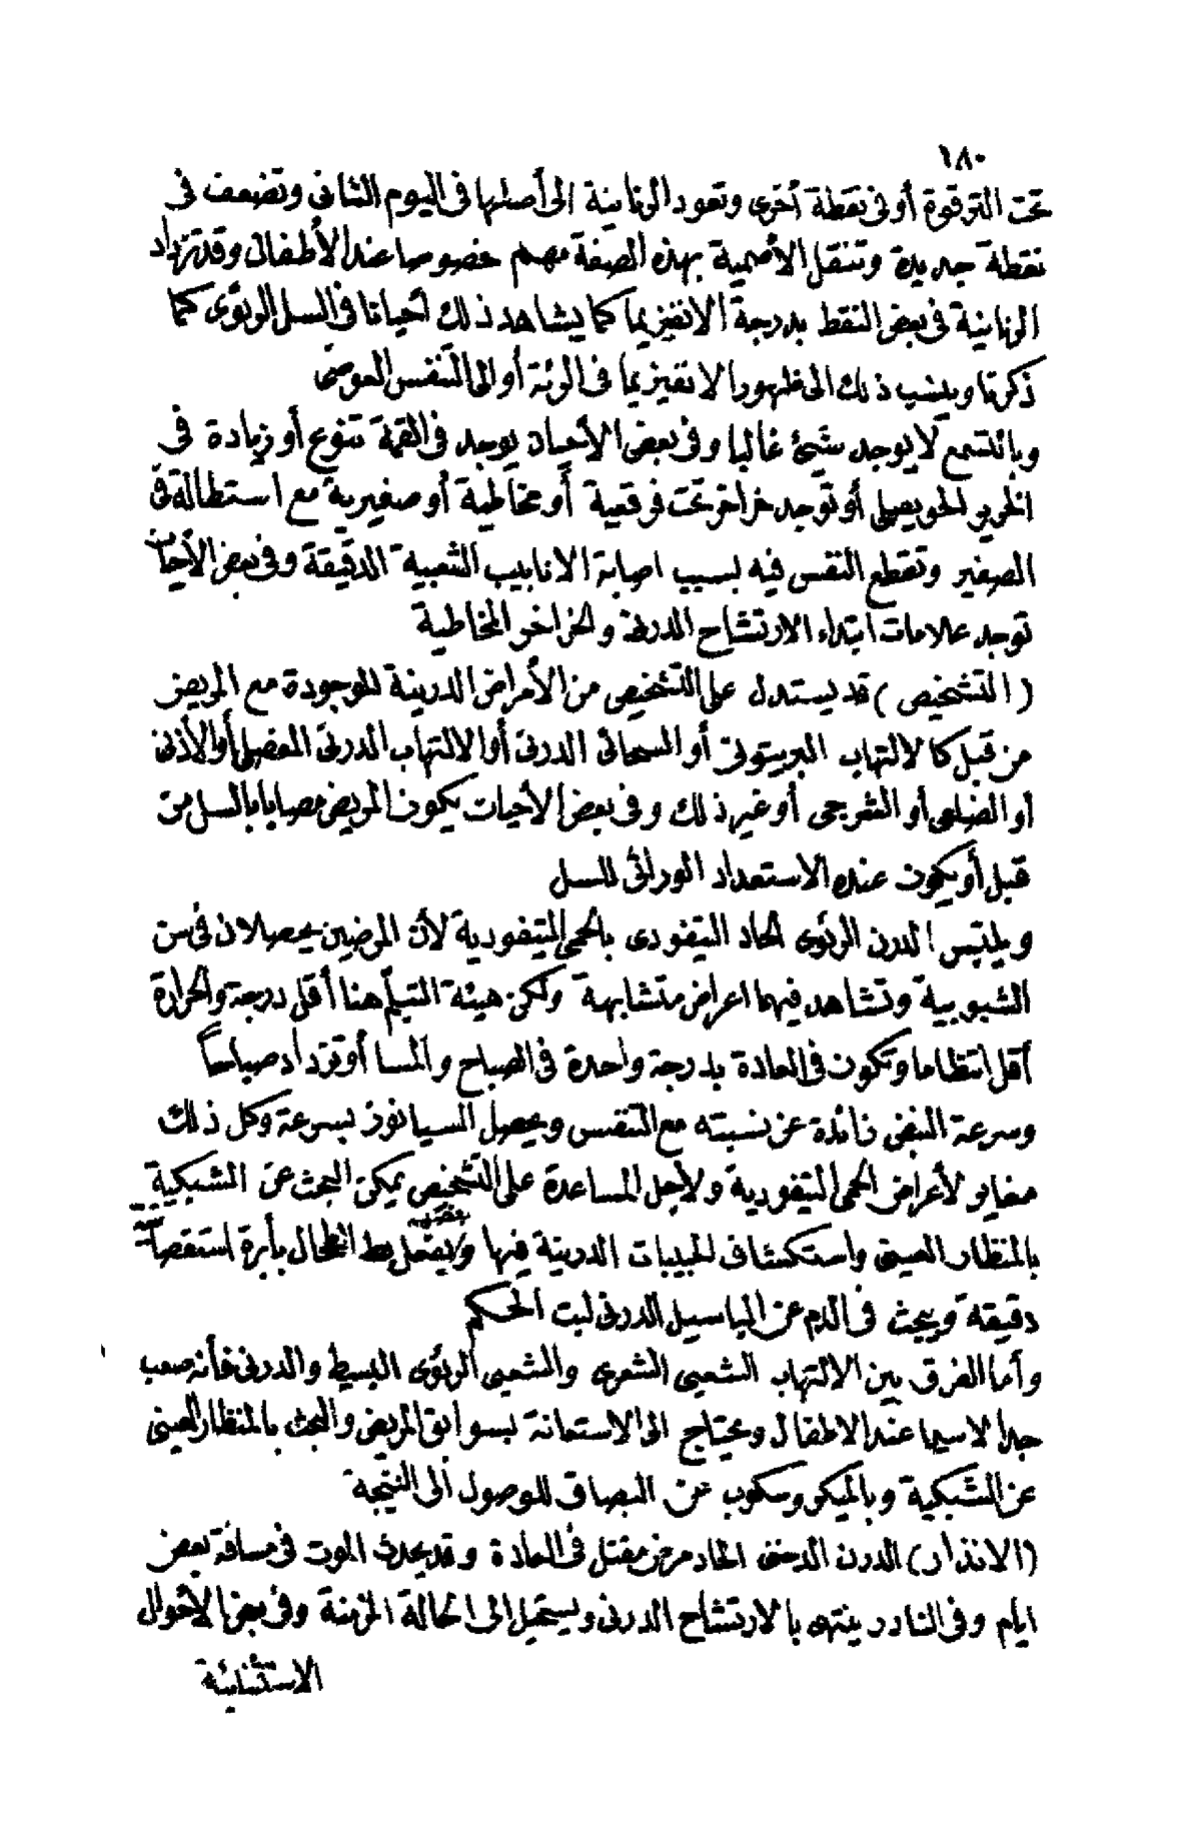 ١٨٠
تحت الترقوة أو فى نقطة أخرى وتعود الرنانية الى أصلها فى اليوم الثانى وتضعف فى
نقطة جديدة وتنقل الأصمية بهذه الصفة مهم خصوصا عند الأطفال وقد تزداد
الرنانية فى بعض النقط بدرجة الانفيزيما كما يشاهد ذلك أحيانا فى السل الرئوى كما
ذكرنا وينسب ذلك الى ظهور الانفيزيما فى الرئة أو الى التنفس العوضى
وبالتسمع لا يوجد شئ غالبا وفى بعض الأحيان يوجد فى القمة تنوع أو زيادة فى
الخرير الحويصلى أو توجد خراخر تحت فرقعية أو مخاطية أو صفيرية مع استطالة فى
الصفير وتقطع النفس فيه بسبب اصابة الانابيب الشعبية الدقيقة وفى بعض الأحيان
توجد علامات ابتداء الارتشاح الدرنى والخراخر المخاطية
(التشخيص) قد يستدل على التشخيص من الأمراض الدرينة الموجودة مع المريض
من قبل كالالتهاب البريتونى أو السحائى الدرنى أو الالتهاب الدرنى المفصلى أو الأذنى
أو الضلعى أو الشرجى أو غير ذلك وفى بعض الأحيات يكون المريض مصابا بالسل من
قبل أو يكون عنده الاستعداد الوراثى للسل
ويلتبس الدرن الرئوى الحاد التيفودى بالحمى التيفودية لأن المرضين يحصلان فى سن
الشبوبية وتشاهد فيهما اعراض متشابهة ولكن هيئة التيلم هنا أقل درجة والحرارة
أقل انتظاما وتكون فى العادة بدرجة واحدة فى الصباح والمسا أو تزداد صباحاً
وسرعة النبض زائدة عن نسبته مع التنفس ويحصل السيانوز بسرعة وكل ذلك
مغاير لأعراض الحمى التيفودية ولاجل المساعدة على التشخيص يمكن البحث عن الشبكية
بالمنظار العينى واستكشاف الحبيبات الدرينة فيها ويفعل بط الطحال بأبرة استقصائية
دقيقة ويبحث فى الدم عن الباسيل الدرنى ليت الحكم
وأما الفرق بين الالتهاب الشعبى الشعرى والشعبى الرئوى البسيط والدرنى فأنه صعب
جدا لاسيما عند الاطفال ويحتاج الى الاستعانة بسوابق المريض والبحث بالمنظار العينى
عن الشبكية وبالميكروسكوب عن البصاق للوصول الى النتيجة
(الانذار) الدرن الدخنى الحاد مرض مقتل فى العادة وقد يحدث الموت فى مسافة بعض
ايام وفى النادر ينتهى بالارتشاح الدرنى ويستحيل الى الحالة المزمنة وفى بعض الأحوال
الاستثنائية